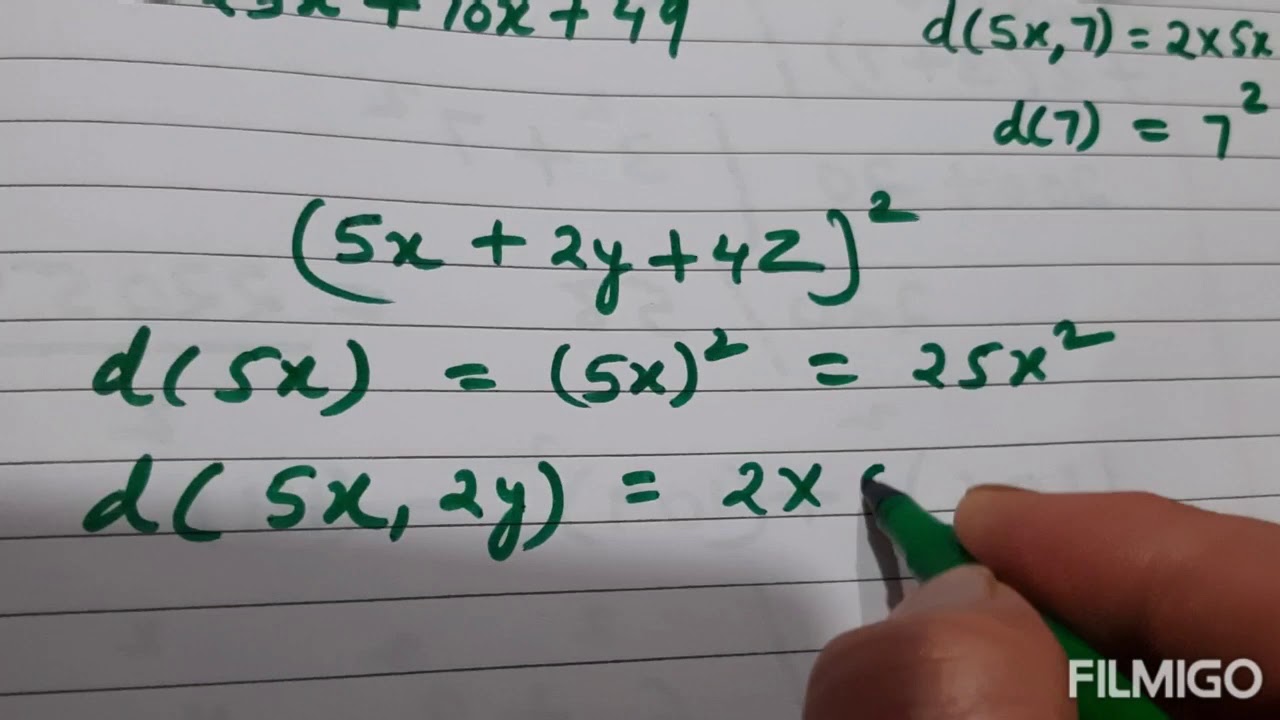 + 70x + 49
d(5x, 7) = 2 x 5x
d(7) = 7²
(5x + 2y + 4z)²
d(5x) = (5x)² = 25x²
d(5x, 2y) = 2x
FILMIGO